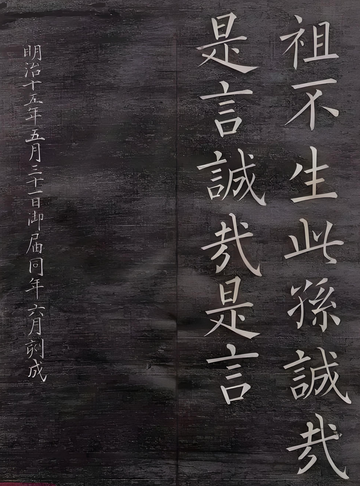 祖不生此孫誠哉
是言誠哉是言
明治十五年五月三十一日御届同年六月刻成